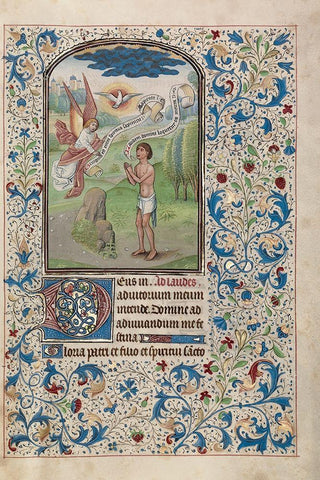 Deus in. Ad laudes
adiutorium meum
intende. Domine ad
adiuuandum me fe
stina
Gloria patri et filio et spiritui sācto